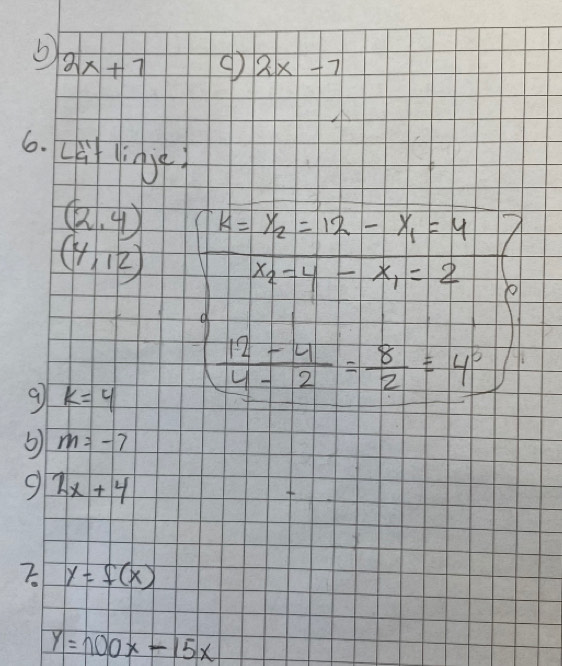 b) 2x + 7 c) 2x - 7
6. Låt linje:
(2,4)
(4,12)
k = y₂ = 12 - y₁ = 4
x₂ = 4 - x₁ = 2
12 - 4 = 8 = 4
4 - 2 2
a) k = 4
b) m = -7
c) 2x + 4
7. y = f(x)
y = 100x - 15x